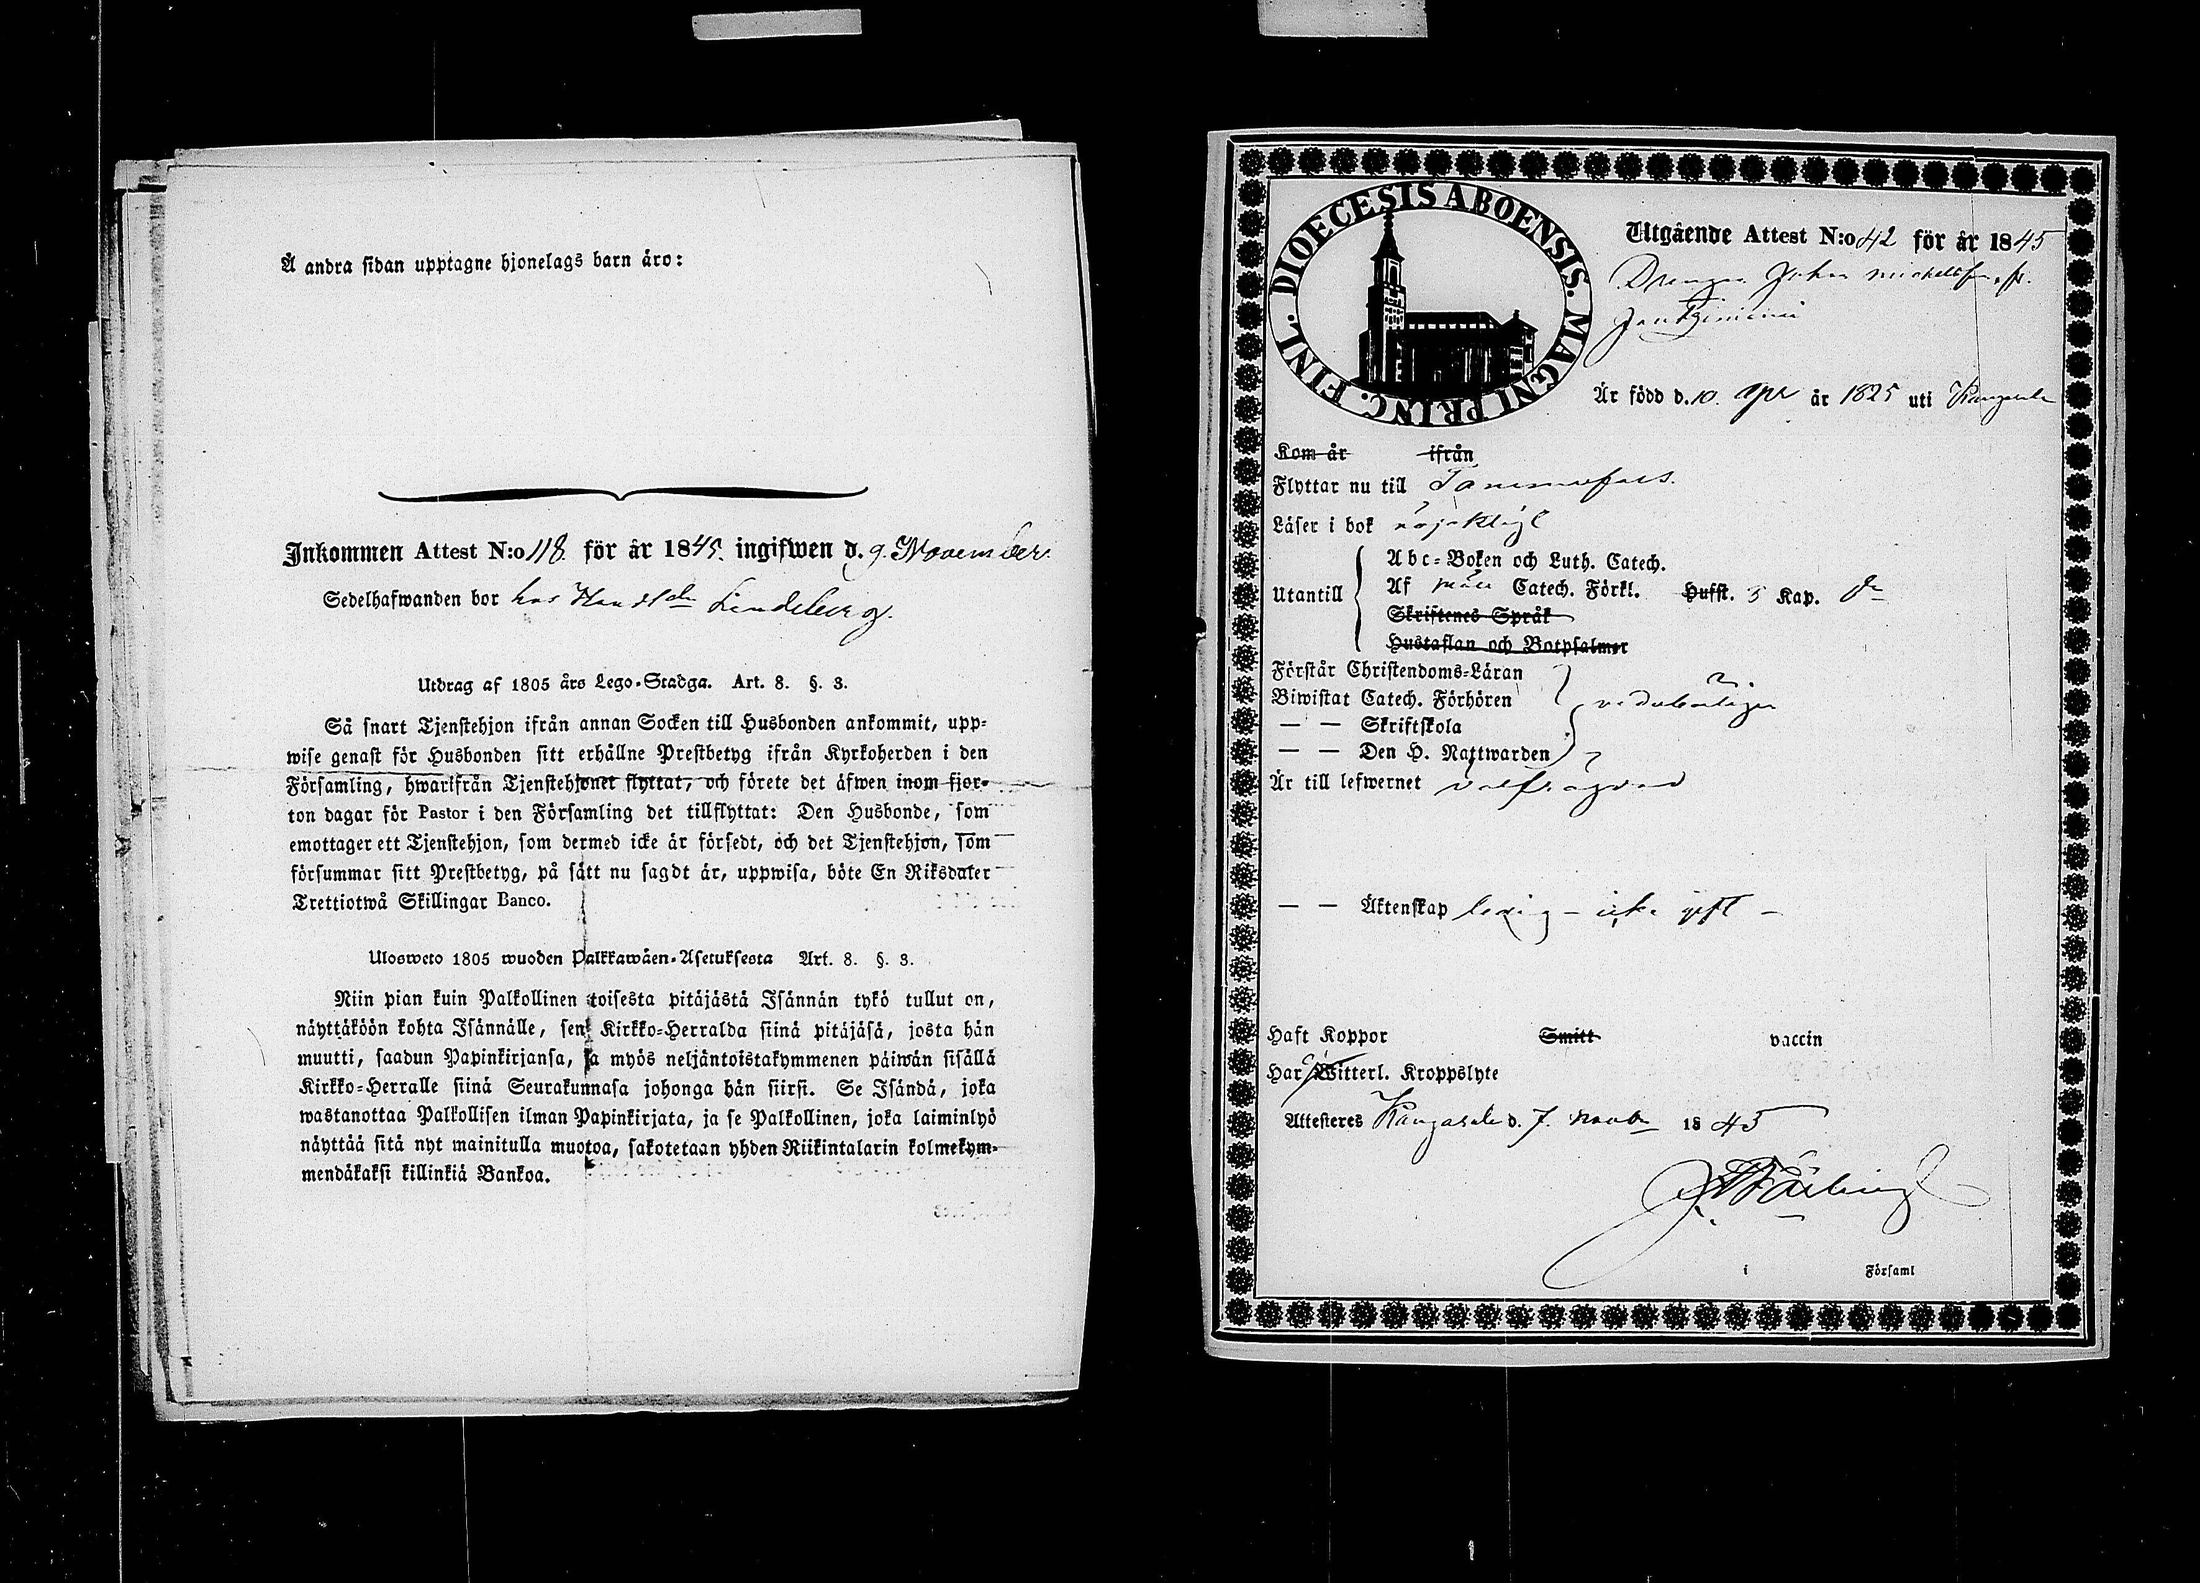 Å andra sidan upptagne hjonelags barn äro:
Inkommen Attest N:o 118. för år 1845. ingifwen d. 9. November.
Sedelhafwanden bor hos Handl Lindeberg.
Utdrag af 1805 års Lego-Stadga. Art. 8. §. 3.
Så snart Tjenstehjon ifrån annan Socken till Husbonden ankommit, upp-
wise genast för Husbonden sitt erhållne Prestbetyg ifrån Kyrkoherden i den
Församling, hwarifrån Tjenstehjonet flyttat, och förete det äfwen inom fjor-
ton dagar för Pastor i den Församling det tillflyttat: Den Husbonde, som
emottager ett Tjenstehjon, som dermed icke är försedt, och det Tjenstehjon, som
försummar sitt Prestbetyg, på sätt nu sagdt är, uppwisa, böte En Riksdaler
Trettiotwå Skillingar Banco.
Ulosweto 1805 wuoden Palkkawäen-Asetuksesta Art. 8. §. 3.
Niin pian kuin Palkollinen toisesta pitäjästä Isännän tykö tullut on,
näyttäköön kohta Isännälle, sen Kirkko-Herralda siinä pitäjäsä, josta hän
muutti, saadun Papinkirjansa, ja myös neljäntoistakymmenen päiwän sisällä
Kirkko-Herralle siinä Seurakunnasa johonga hän siirsi. Se Isändä, joka
wastanottaa Palkollisen ilman Papinkirjata, ja se Palkollinen, joka laiminlyö
näyttää sitä nyt mainitulla muotoa, sakotetaan yhden Riikintalarin kolmekym-
mendäkaksi killinkiä Bankoa.
DIOECESIS ABOENSIS. MAGNI PRINC. FINL.
Utgående Attest N:o 42 för år 1845
Drengen Johan Michelsson fr.
Är född d. 10. Apr år 1825 uti Kangasala
Kom år ifrån
Flyttar nu till Tammerfors.
Läser i bok nöjaktigt
Utantill
Abc-Boken och Luth. Catech.
Af Catech. Förkl. Hufst. 3 Kap.
Skriftenes Språk
Hustaflan och Botpsalmer
Förstår Christendoms-Läran
Biwistat Catech. Förhören vederbörligen
— — Skriftskola
— — Den H. Nattwarden
Är till lefwernet välfrägdad
— — Äktenskap ledig - icke gift -
Haft Koppor Smitt vaccin
Har Witterl. Kroppslyte
Attesteres Kangasala d. 7. Novb 1845
i Församl